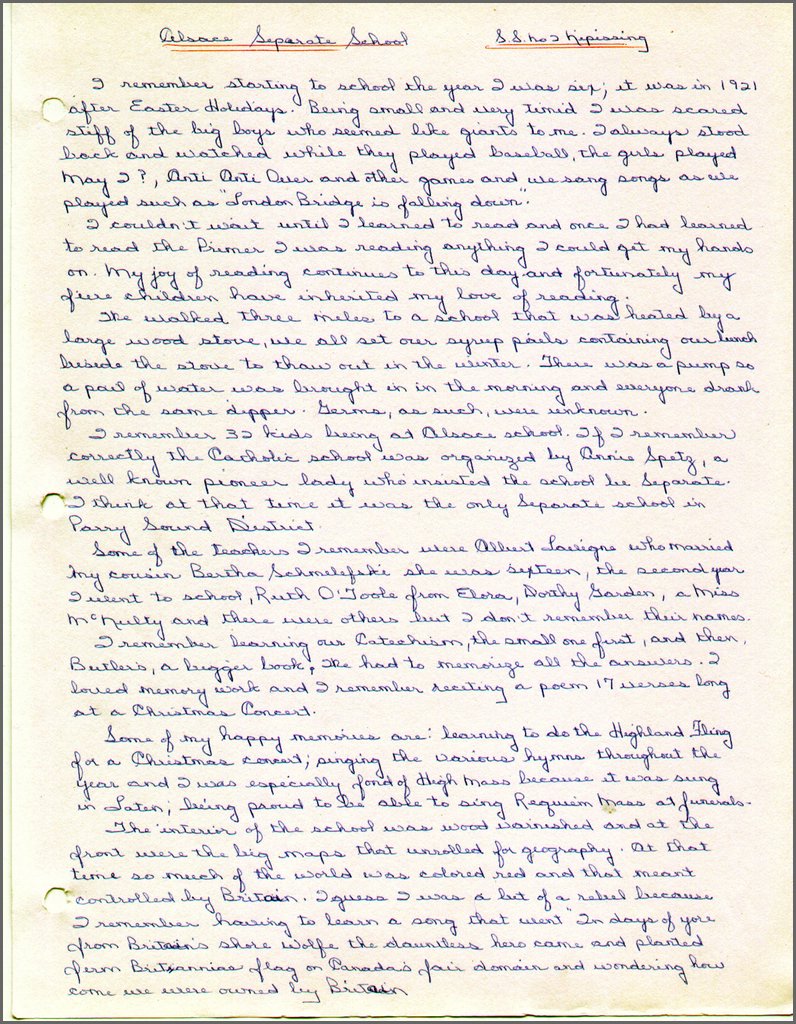 Alsace Separate School S.S. no 2 Nipissing
I remember starting to school the year I was six; it was in 1921
after Easter Holidays. Being small and very timid I was scared
stiff of the big boys who seemed like giants to me. I always stood
back and watched while they played baseball, the girls played
May I?, Anti Anti Over and other games and we sang songs as we
played such as "London Bridge is falling down".
I couldn't wait until I learned to read and once I had learned
to read the Primer I was reading anything I could get my hands
on. My joy of reading continues to this day and fortunately my
five children have inherited my love of reading.
We walked three miles to a school that was heated by a
large wood stove, we all set our syrup pails containing our lunch
beside the stove to thaw out in the winter. There was a pump so
a pail of water was brought in in the morning and everyone drank
from the same dipper. Germs, as such, were unknown.
I remember 32 kids being at Alsace school. If I remember
correctly the Catholic school was organized by Annie Spetz, a
well known pioneer lady who insisted the school be Separate.
I think at that time it was the only Separate school in
Parry Sound District.
Some of the teachers I remember were Albert Lavigne who married
my cousin Bertha Schmelefski she was sixteen, the second year
I went to school, Ruth O'Toole from Elora, Dorthy Garden, a Miss
McNulty and there were others but I don't remember their names.
I remember learning our Catechism, the small one first, and then,
Butlers, a bigger book, We had to memorize all the answers. I
loved memory work and I remember reciting a poem 17 verses long
at a Christmas Concert.
Some of my happy memories are: learning to do the Highland Fling
for a Christmas concert; singing the various hymns throughout the
year and I was especially fond of High Mass because it was sung
in Laten; being proud to be able to sing Requiem Mass at funerals.
The interior of the school was wood varnished and at the
front were the big maps that unrolled for geography. At that
time so much of the world was colored red and that meant
controlled by Britain. I guess I was a bit of a rebel because
I remember having to learn a song that went "In days of yore
from Britain's shore Wolfe the dauntless hero came and planted
ferm Britanniae flag on Canada's fair domain and wondering how
come we were owned by Britain